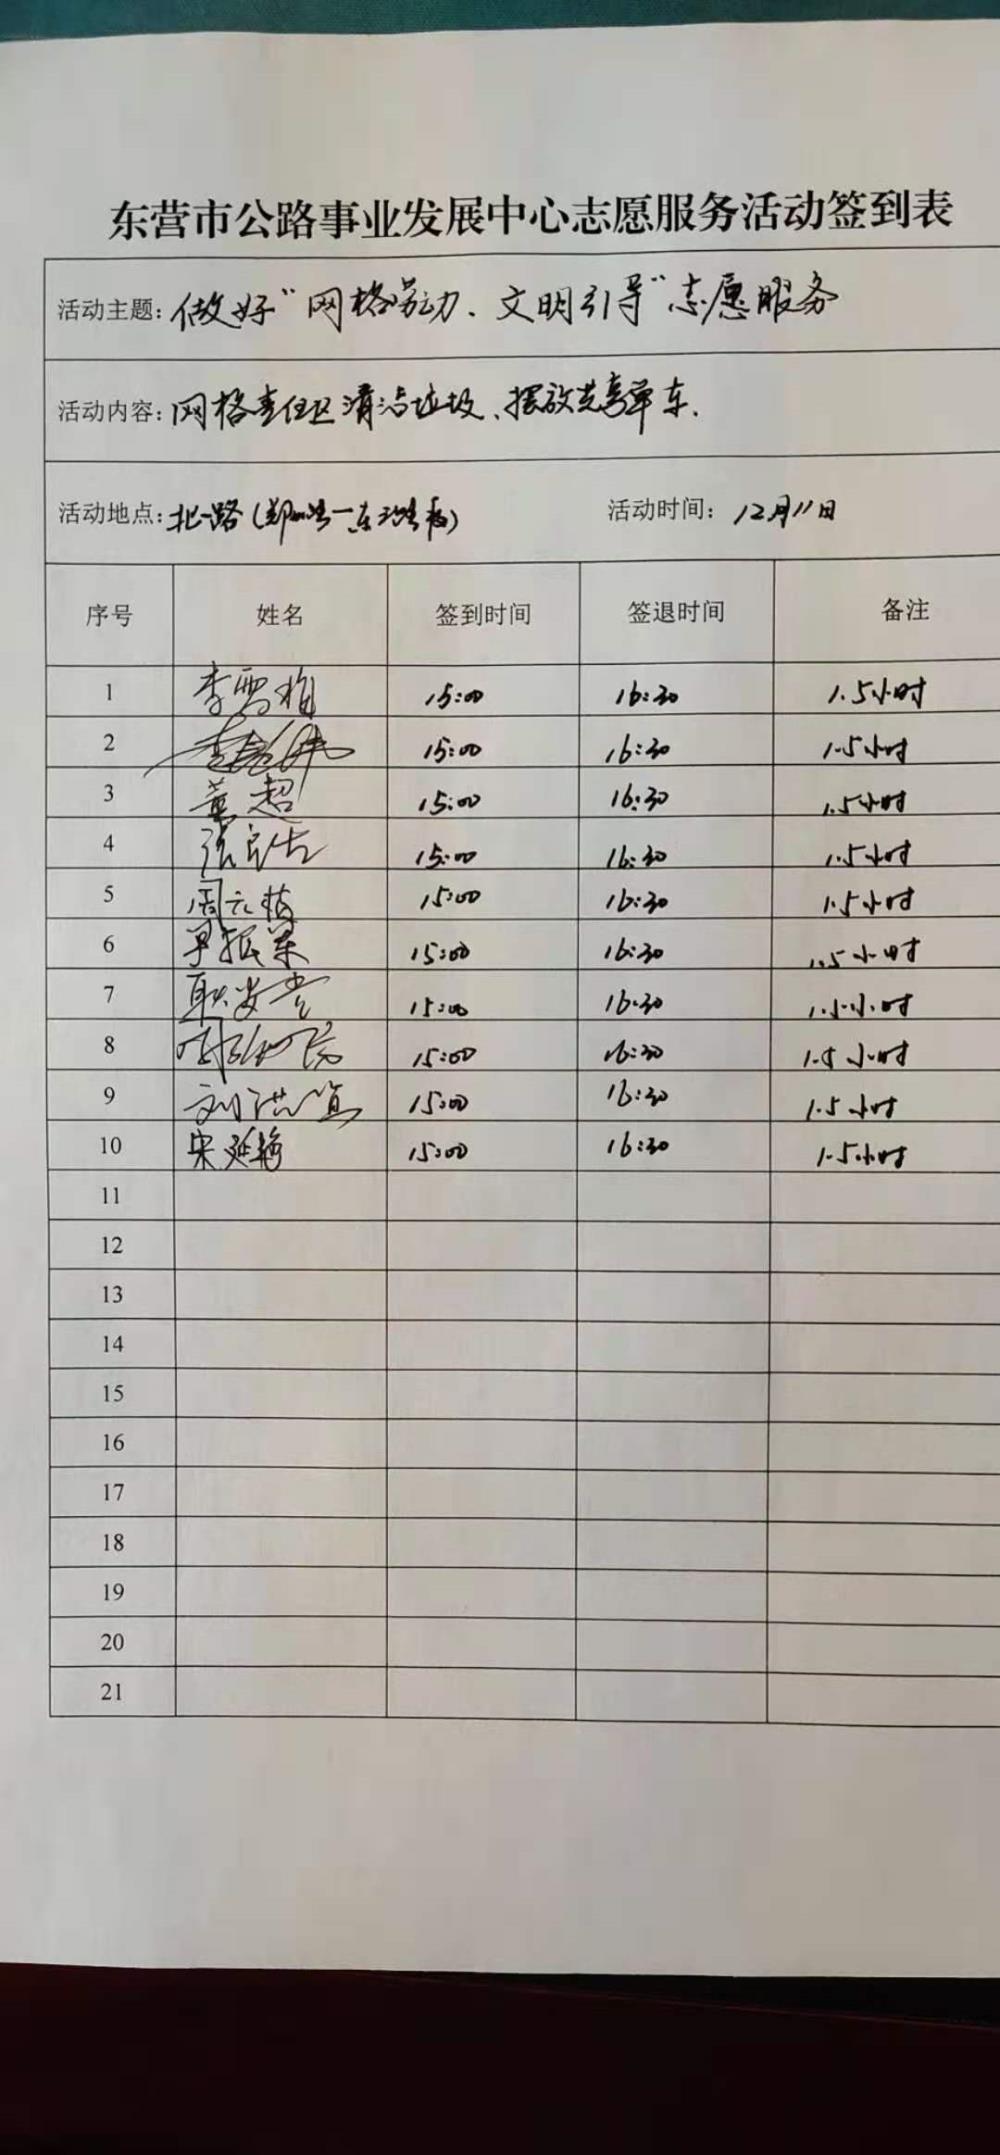 东营市公路事业发展中心志愿服务活动签到表
活动主题：做好"网格劳动、文明引导"志愿服务
活动内容：网格责任区清洁垃圾、摆放共享单车.
活动地点：北一路（郑州路一东三路 活动时间：12月11日
序号 姓名 签到时间 签退时间 备注
1 李雪梅 15:00 16:30 1.5小时
2 15:00 16:30 1.5小时
3 黄超 15:00 16:30 1.5小时
4 张 15:00 16:30 1.5小时
5 周云 15:00 16:30 1.5小时
6 振 15:00 16:30 1.5小时
7 耿 15:00 16:30 1.5小时
8 15:00 16:30 1.5小时
9 刘洪 15:00 16:30 1.5小时
10 宋延梅 15:00 16:30 1.5小时
11
12
13
14
15
16
17
18
19
20
21